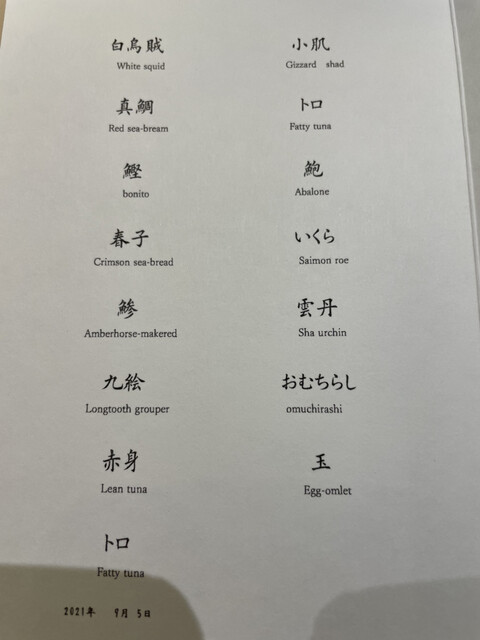 白烏賊
White squid
真鯛
Red sea-bream
鰹
bonito
春子
Crimson sea-bread
鯵
Amberhorse-makered
九絵
Longtooth grouper
赤身
Lean tuna
トロ
Fatty tuna
小肌
Gizzard shad
トロ
Fatty tuna
鮑
Abalone
いくら
Saimon roe
雲丹
Sha urchin
おむちらし
omuchirashi
玉
Egg-omlet
2021年 9月 5日